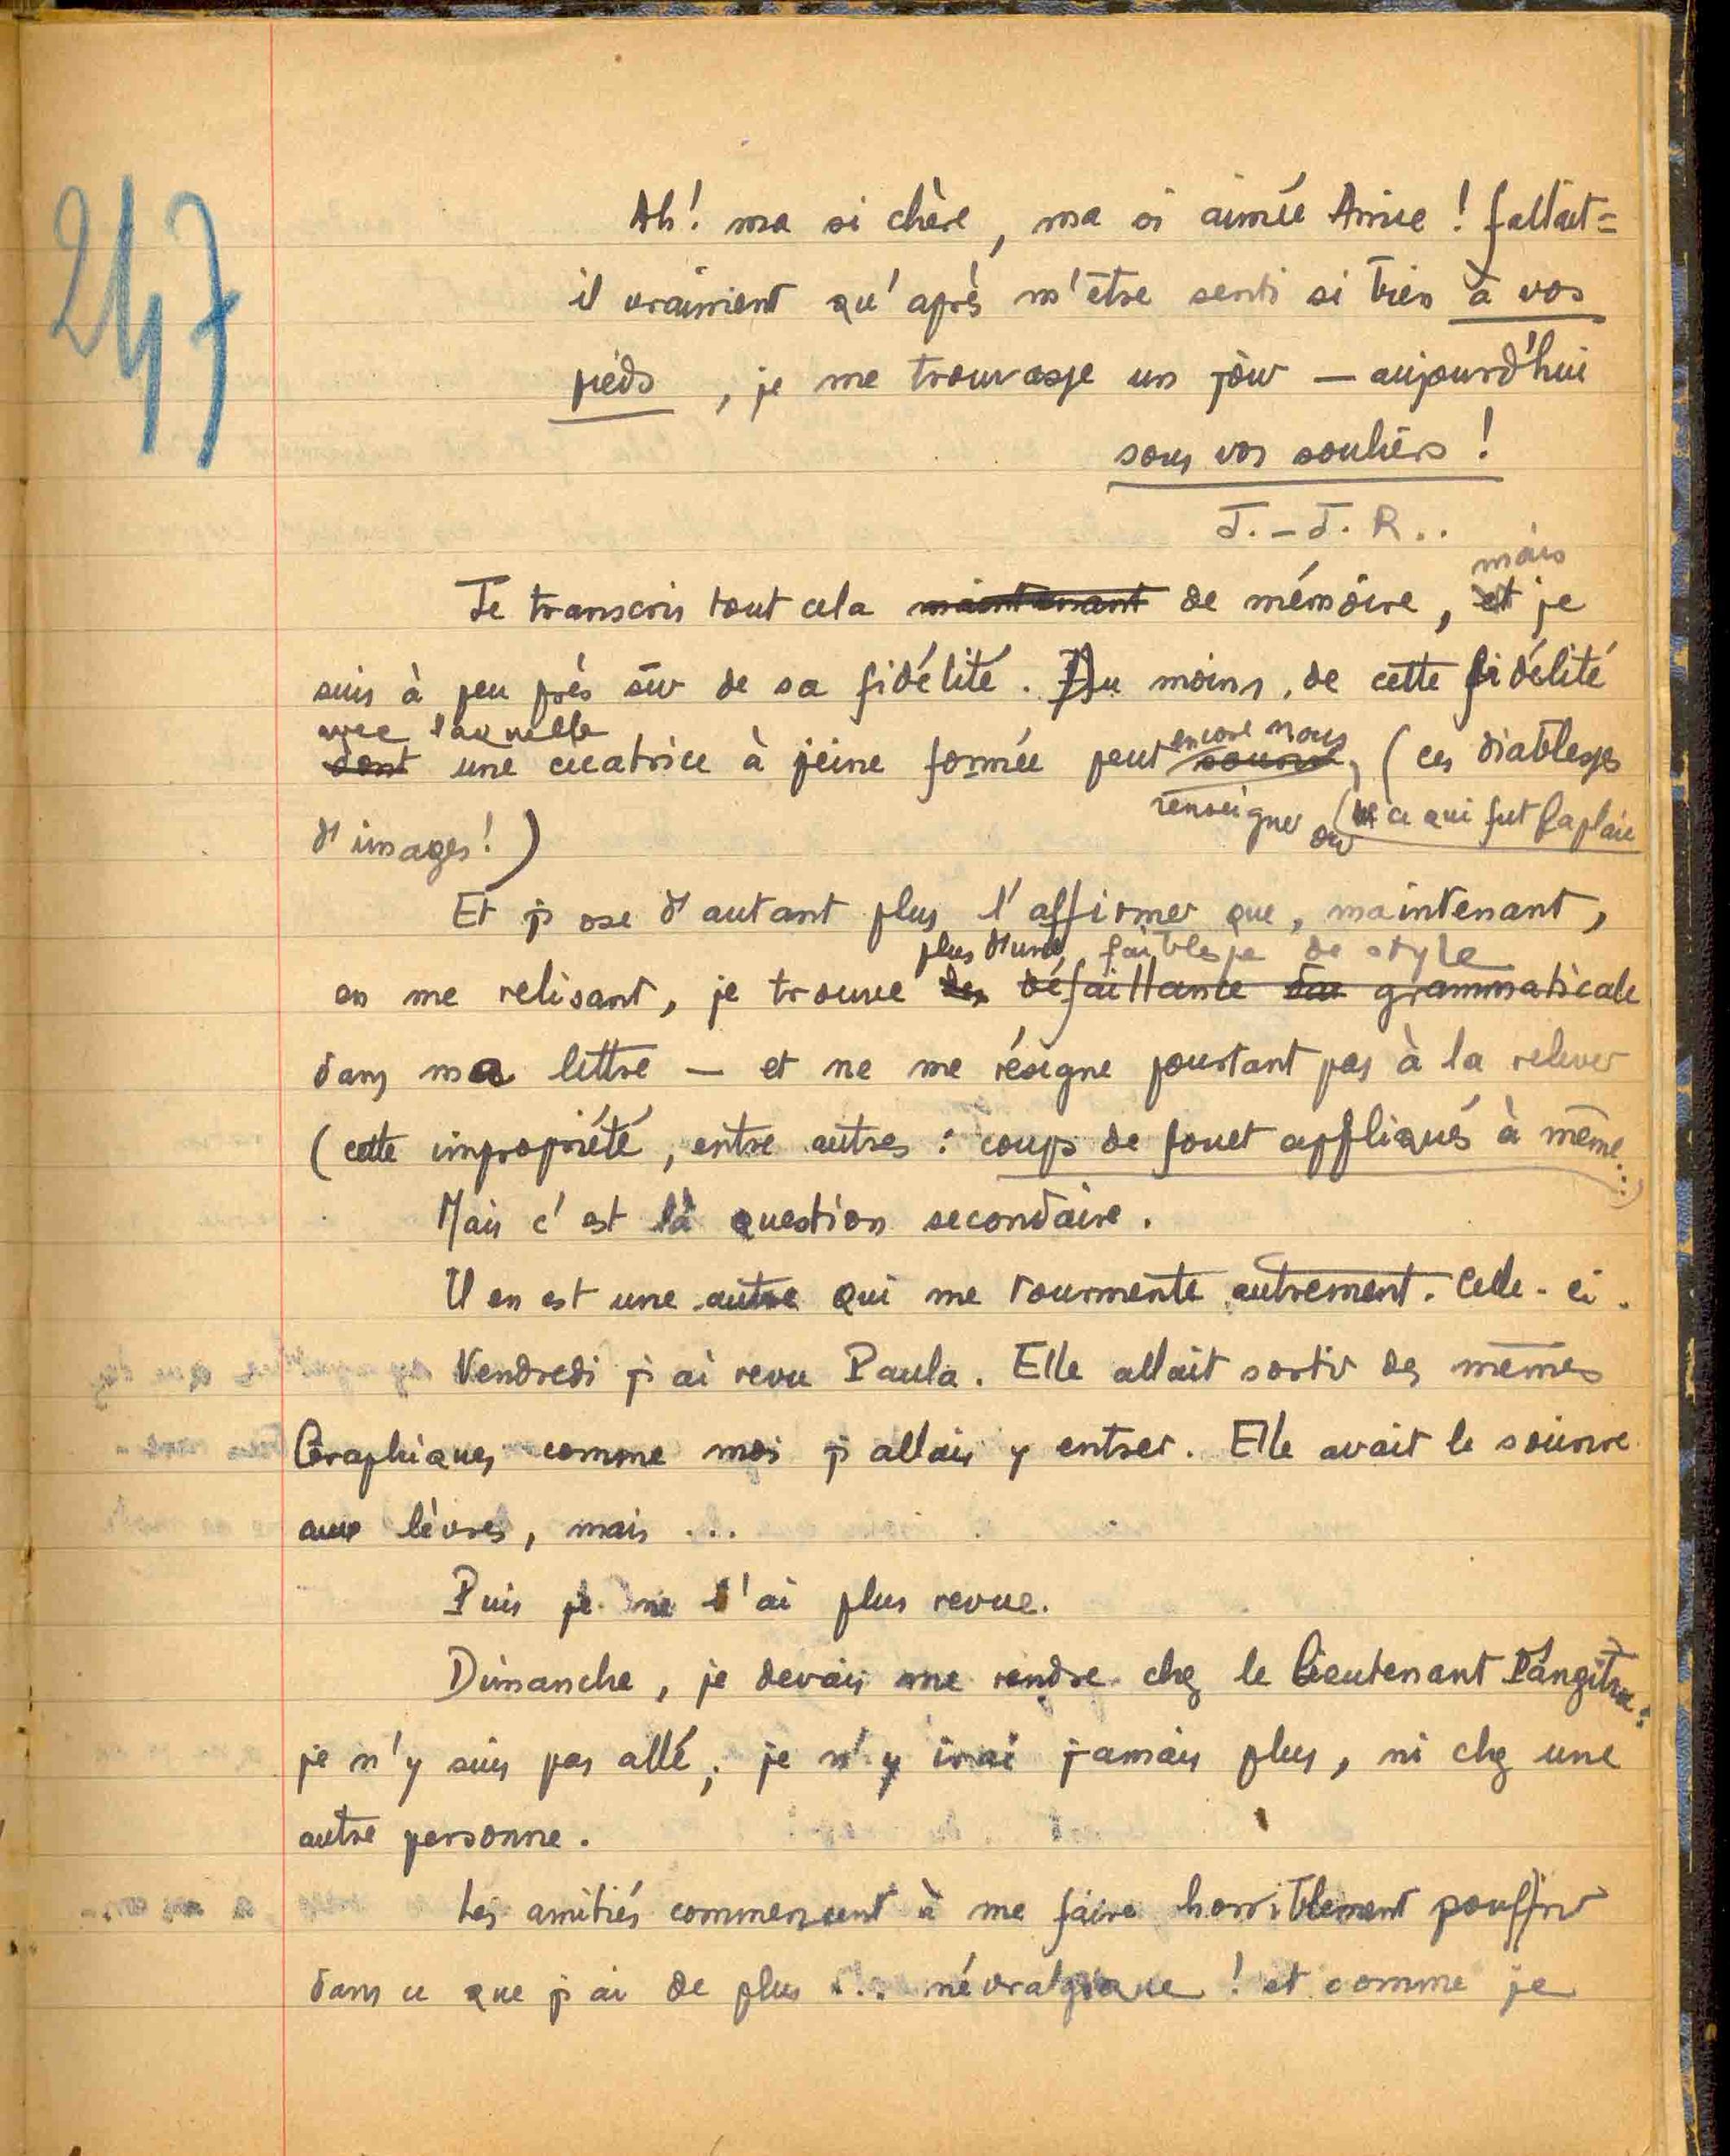 247
Ah! ma si chère, ma si aimée Amie ! fallait=
il vraiment qu'après m'être senti si bien à vos
pieds, je me trouvasse un jour — aujourd'hui
sous vos souliers !
J.-J. R..
mais
Je transcris tout cela maintenant de mémoire, et je
suis à peu près sûr de sa fidélité. Au moins, de cette fidélité
avec laquelle encore nous
dont une cicatrice à peine formée peut (ces diablesses
renseigner sur ce qui fut la plaie
d'images!)
Et j'ose d'autant plus l'affirmer que, maintenant,
plus d'une, faiblesse de style
en me relisant, je trouve des défaillance grammaticale
dans ma lettre — et ne me résigne pourtant pas à la relever
(cette impropriété, entre autres : coups de fouet appliqués à même..)
Mais c'est là question secondaire.
Il en est une autre qui me tourmente autrement. Celle-ci.
Vendredi j'ai revu Paula. Elle allait sortir des mêmes
Graphiques comme moi j'allais y entrer. Elle avait le sourire
aux lèvres, mais ...
Puis je ne l'ai plus revue.
Dimanche, je devais me rendre chez le lieutenant
je n'y suis pas allé; je n'y irai jamais plus, ni chez une
autre personne.
Les amitiés commencent à me faire horriblement souffrir
dans ce que j'ai de plus ... névralgique ! et comme je